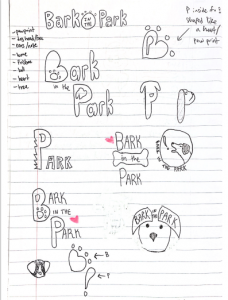 Bark IN THE Park
- pawprint
- dog head/face
- bone
- frisbee
- ball
- heart
- tree
P inside of B
shaped like
a heart/
paw print
B
Bark
in the
Park
P P
BARK
in the
PARK
BARK
IN THE
PARK
BARK
in the
PARK
BARK IN THE PARK
BARK IN THE PARK
B
← B
P
← P